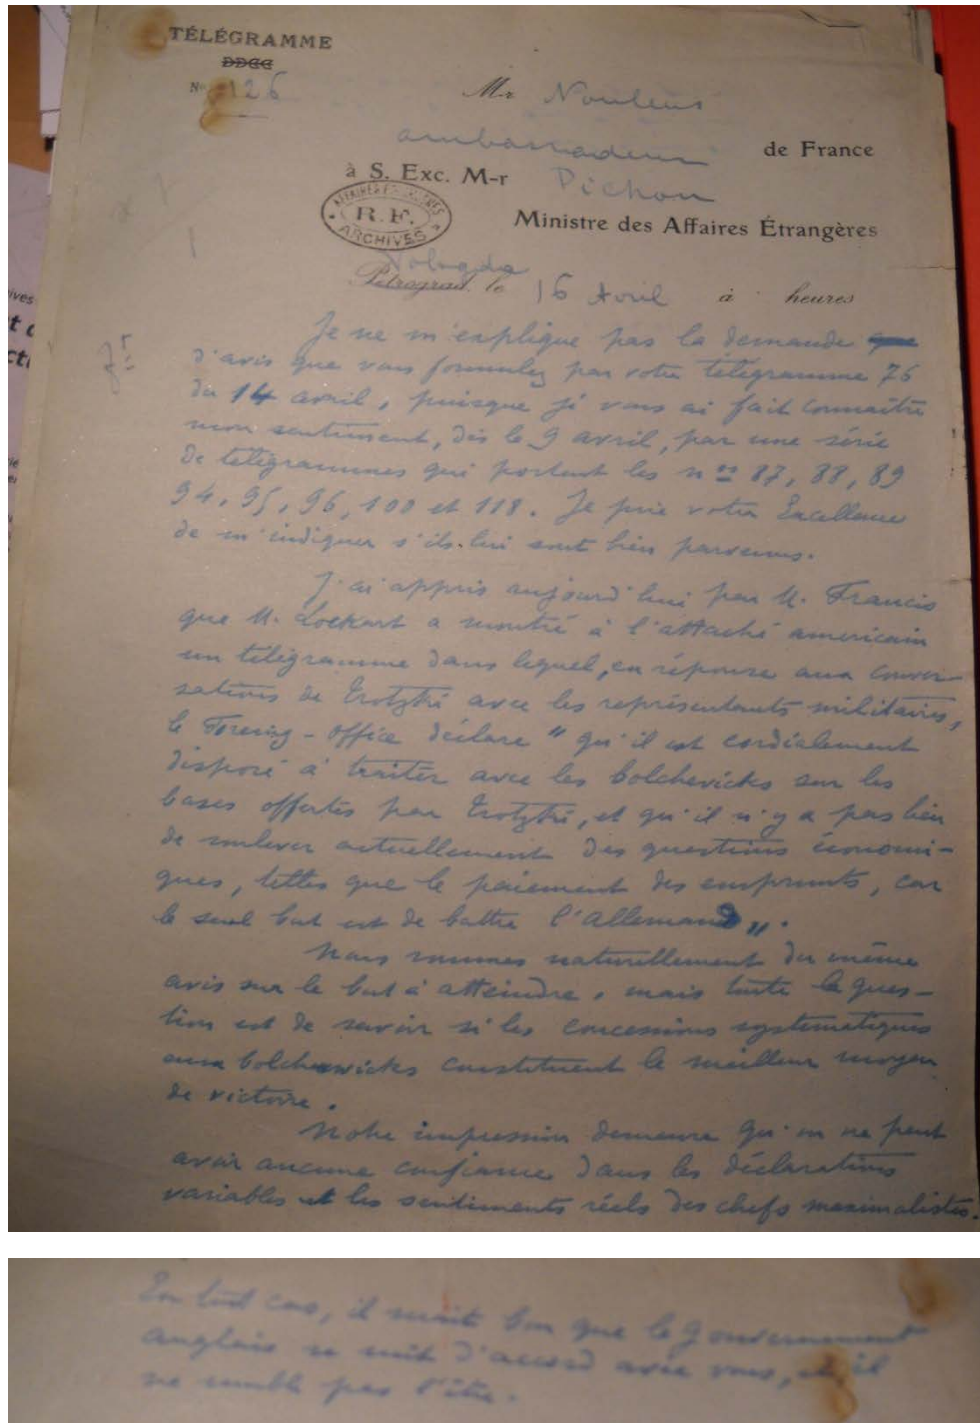 TÉLÉGRAMME
DDCC
N° 126
Mr Noulens
ambassadeur de France
à S. Exc. M-r Pichon
AFFAIRES ÉTRANGÈRES
R. F.
ARCHIVES
Ministre des Affaires Étrangères
Vologda
Pétrograd, le 16 Avril à heures
Je ne m'explique pas la demande que
d'avis que vous formulez par votre télégramme 76
du 14 avril, puisque je vous ai fait connaître
mon sentiment, dès le 9 avril, par une série
de télégrammes qui portent les nos 87, 88, 89
94, 95, 96, 100 et 118. Je prie votre Excellence
de m'indiquer s'ils lui sont bien parvenus.
J'ai appris aujourd'hui par M. Francis
que M. Lockart a montré à l'attaché américain
un télégramme dans lequel, en réponse aux conver-
sations de Trotzki avec les représentants militaires,
le Foreing-office déclare " qu'il est cordialement
disposé à traiter avec les bolchevicks sur les
bases offertes par Trotzki, et qu'il n'y a pas lieu
de soulever actuellement des questions économi-
ques, telles que le paiement des emprunts, car
le seul but est de battre l'Allemand ".
Nous sommes naturellement du même
avis sur le but à atteindre, mais toute la ques-
tion est de savoir si les concessions systématiques
aux bolchewicks constituent le meilleur moyen
de victoire.
Notre impression demeure qu'on ne peut
avoir aucune confiance dans les déclarations
variables et les sentiments réels des chefs maximalistes.
En tout cas, il serait bon que le Gouvernement
anglais se mit d'accord avec vous, et il
ne semble pas l'être.